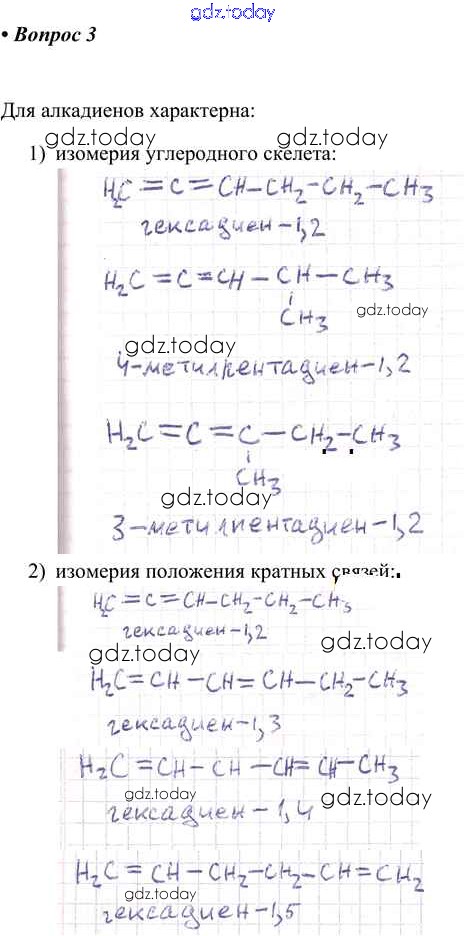 gdz.today
• Вопрос 3
Для алкадиенов характерна:
gdz.today gdz.today
1) изомерия углеродного скелета:
H₂C=C=CH-CH₂-CH₂-CH3
гексадиен-1,2
gdz.today gdz.today
H₂C=C=CH-CH-CH3
CH3
gdz.today
gdz.today
4-метилпентадиен-1,2
H₂C=C=C-CH₂-CH3
CH3
gdz.today gdz.today
3-метилпентадиен-1,2
2) изомерия положения кратных связей:
H₂C=C=CH-CH₂-CH₂-CH3
гексадиен-1,2
gdz.today gdz.today
H₂C=CH-CH=CH-CH₂-CH3
гексадиен-1,3
H₂C=CH-CH-CH=CH-CH3
gdz.today gdz.today
гексадиен-1,4
H₂C=CH-CH₂-CH₂-CH=CH₂
gdz.today gdz.today
гексадиен-1,5